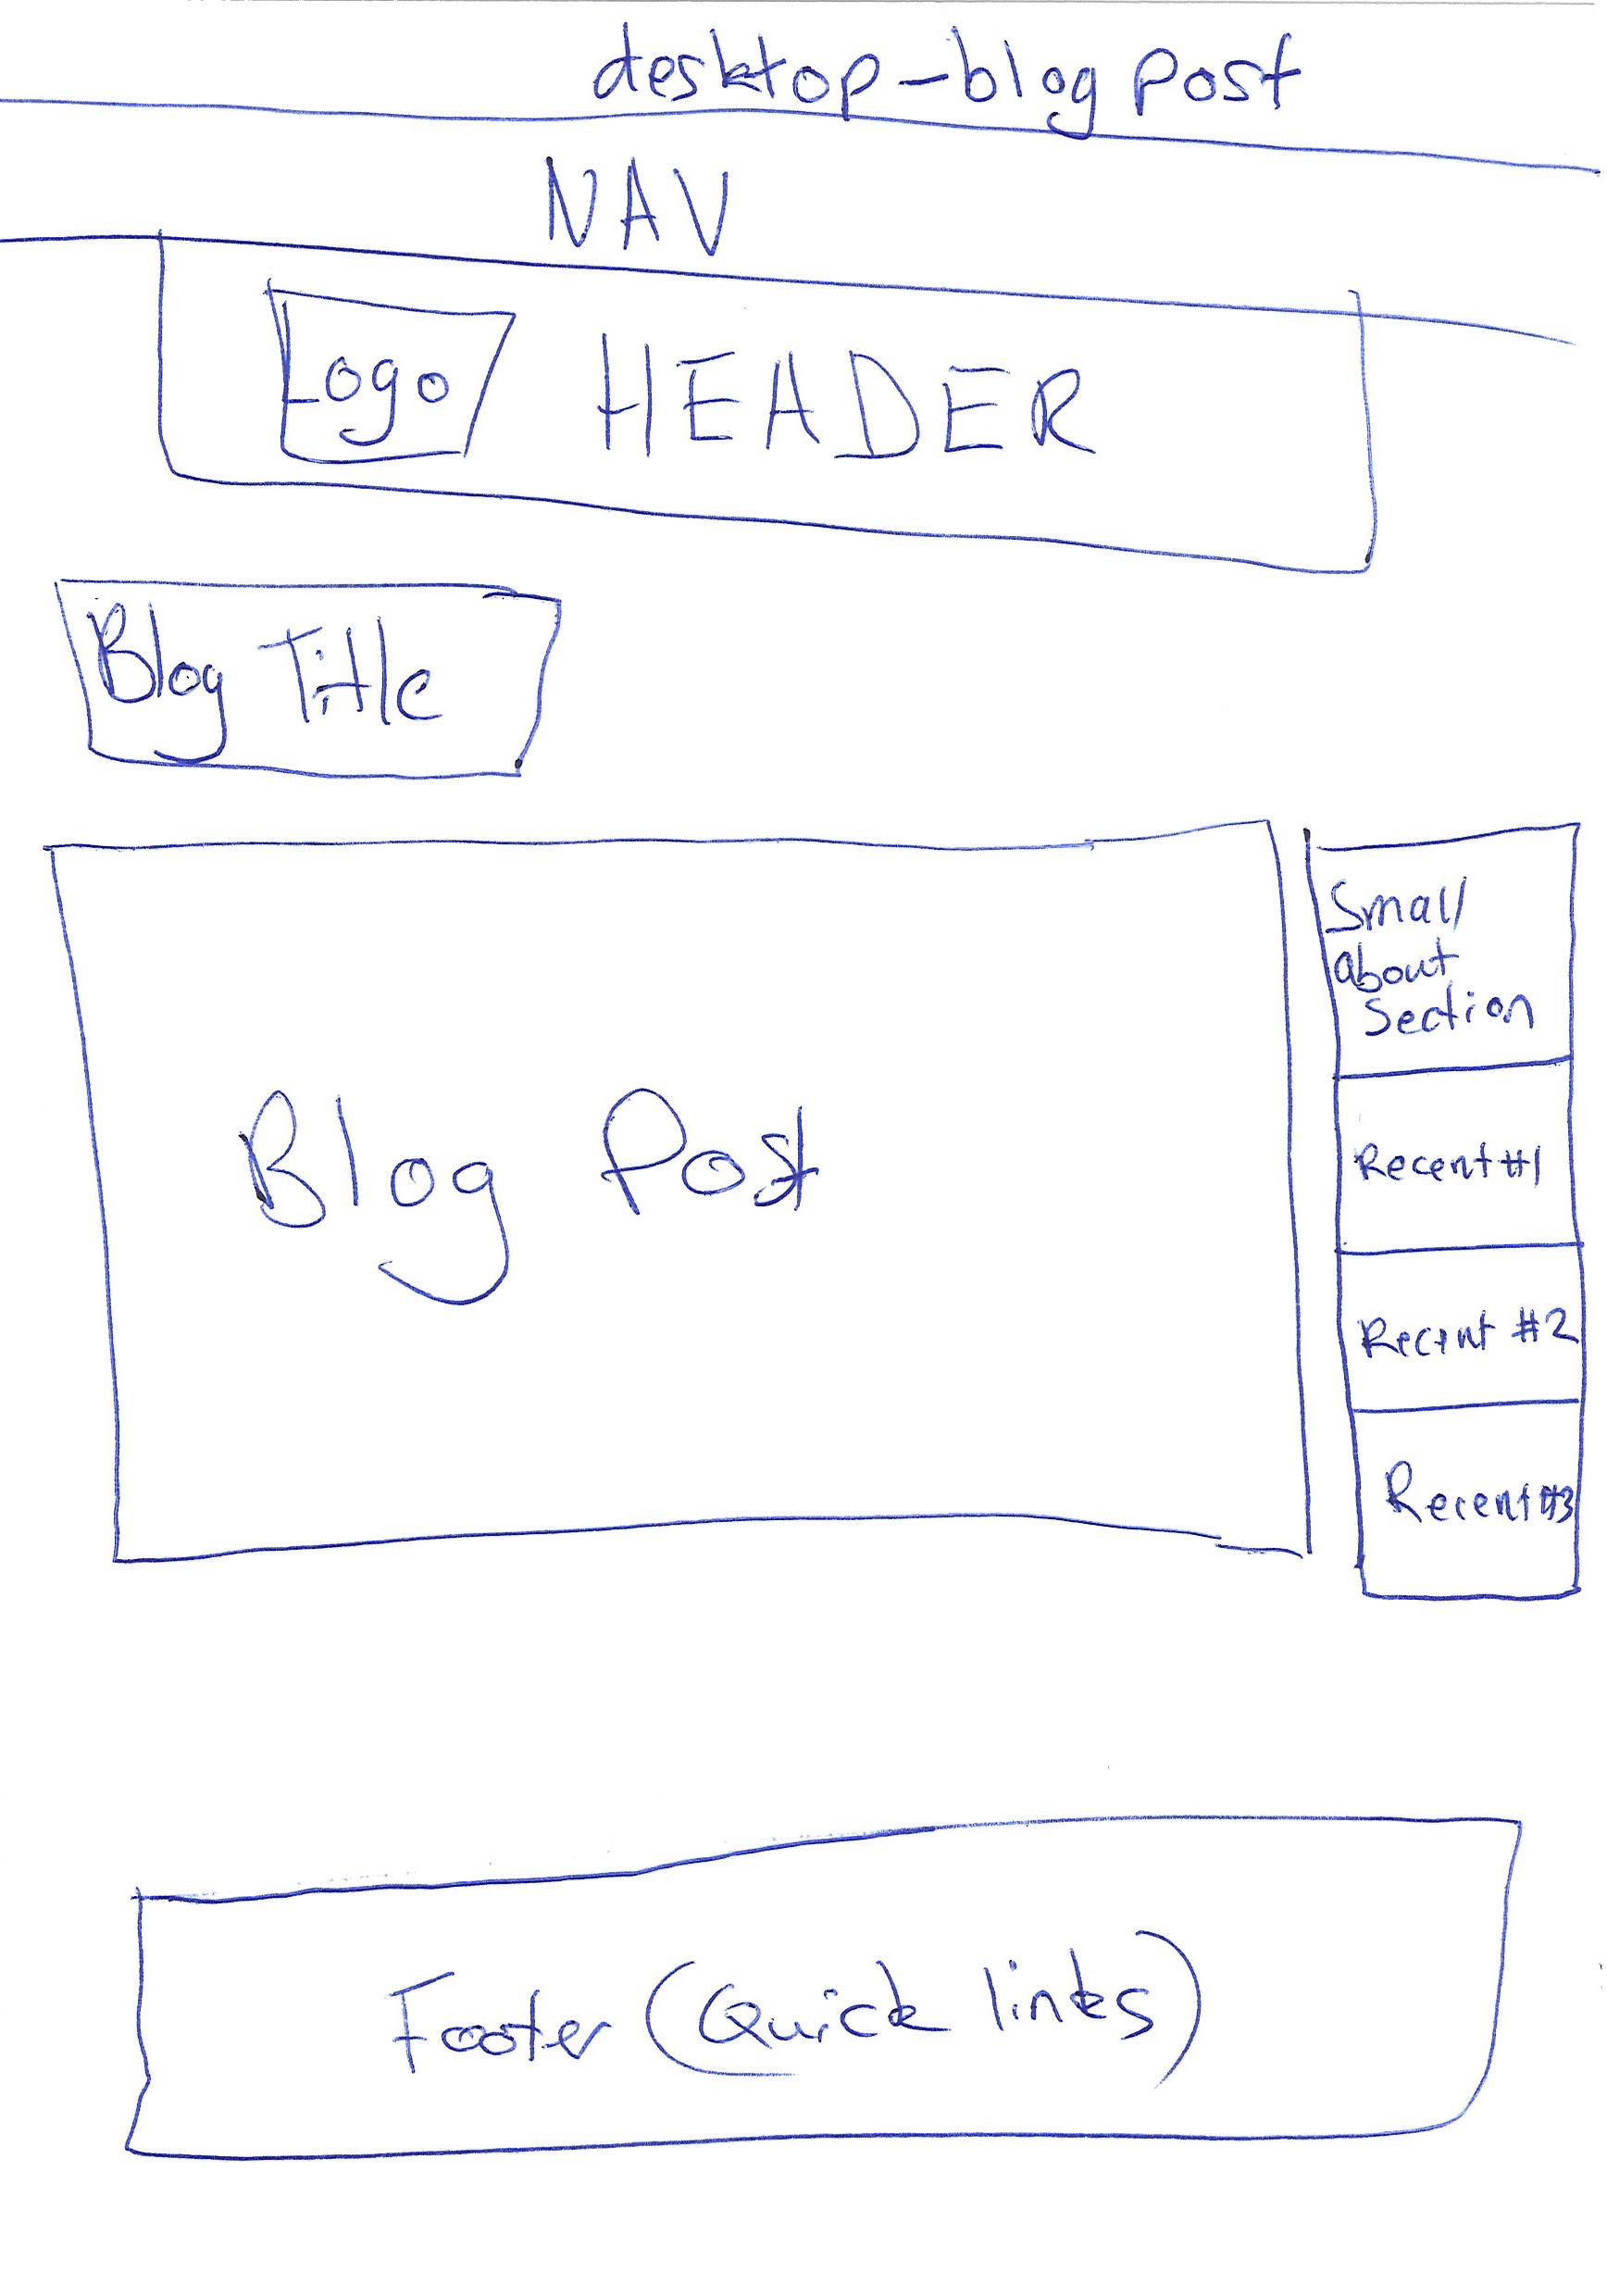 desktop-blog post
NAV
Logo
HEADER
Blog Title
Blog Post
Small
about
Section
Recent #1
Recent #2
Recent #3
Footer (Quick links)